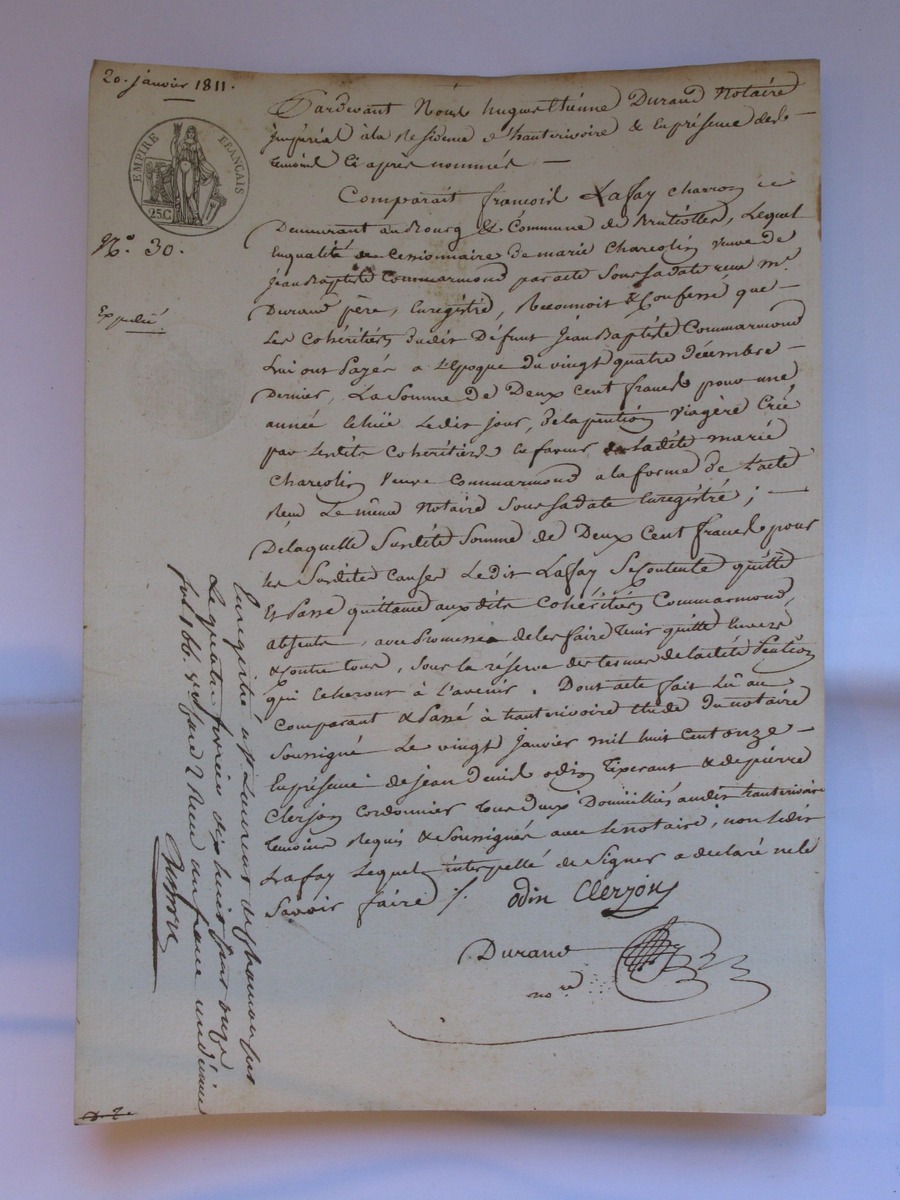 20. janvier 1811.
EMPIRE FRANÇAIS
25 C
N.° 30.
Expédié
Pardevant Nous hugues Etienne Durand Notaire
Impérial à la Residence d'hauterivoire & En présence des
temoins Ci après nommés —
Comparait françois Lafay charron
Demeurant au Bourg & Commune de Brutiolles, Lequel
En qualité de Cessionnaire de marie Charcotin veuve de
Jean Baptiste Commarmond par acte Sous sa date reçu m.e
Durand père, Enregistré, Reconnoit & Confesse que —
Les Cohéritiers dudit Défunt Jean Baptiste Commarmond
Lui ont Payés a L'Epoque du vingt quatre décembre —
Dernier, La Somme de Deux Cent francs pour une
année Echüe Ledit jour, de la pention viagère Créé
par Lesdits Cohéritiers En faveur de Ladite marie
Charcotin Veuve Commarmond a la forme de L'acte
Reçu Le même Notaire Sous sa date Enregistré ; —
De laquelle Susdite Somme de Deux Cent francs pour
les Susdites Causes Ledit Lafay Se Contente quitte
Et Passe quittance auxdits Cohéritiers Commarmond,
absents, avec Promesse de les faire tenir quitte Envers
& Contre tous, Sous la réserve des termes de ladite Pention
qui Echeront à L'avenir. Dont acte fait Lû au
Comparant & Passé à hauterivoire Etude du notaire
Soussigné Le vingt Janvier mil huit Cent onze —
En présence de jean Denis odin Tixerant & de pierre
Clerjon Cordonnier tous deux Domiciliés audit hauterivoire
temoins Requis & Soussignés avec le notaire, non Ledit
Lafay Lequel interpellé de Signer a déclaré ne le
Savoir faire /.
odin Clerjon
Durand
no.re
Enregistré à St Laurent de chamousset
Le quatre fevrier dix huit cent onze
fol. 166 Reçu deux francs un décime